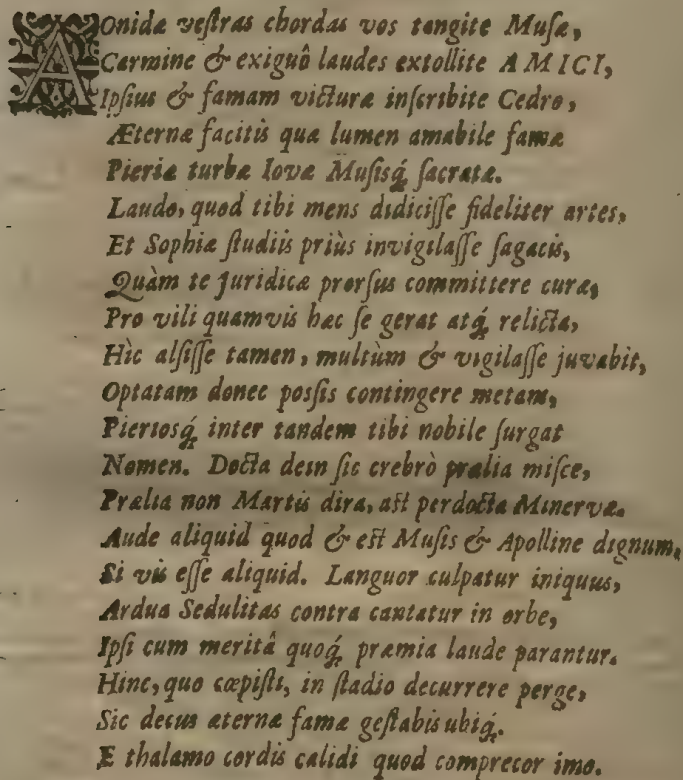 AOnidæ veſtras chordas vos tangite Muſæ,
Carmine & exiguô laudes extollite AMICI,
Ipſius & famam victuræ inſcribite Cedro,
Æternæ facitis quæ lumen amabile famæ
Pieriæ turbæ Iovæ Muſisq́; ſacratæ.
Laudo, quod tibi mens didiciſſe fideliter artes,
Et Sophiæ ſtudiis priùs invigilaſſe ſagacis,
Quàm te Juridicæ prorſus committere curæ,
Pro vili quamvis hæc ſe gerat atq́; relicta,
Hìc alſiſſe tamen, multùm & vigilaſſe juvabit,
Optatam donec poſſis contingere metam,
Pieriosq́; inter tandem tibi nobile ſurgat
Nomen. Docta dein ſic crebrò prælia miſce,
Prælia non Martis dira, aſt perdocta Minervæ.
Aude aliquid quod & eſt Muſis & Apolline dignum,
Si vis eſſe aliquid. Languor culpatur iniquus,
Ardua Sedulitas contra cantatur in orbe,
Ipſi cum meritâ quoq́; præmia laude parantur.
Hinc, quo cœpiſti, in ſtadio decurrere perge,
Sic decus æternæ famæ geſtabis ubiq́;.
E thalamo cordis calidi quod comprecor imo.